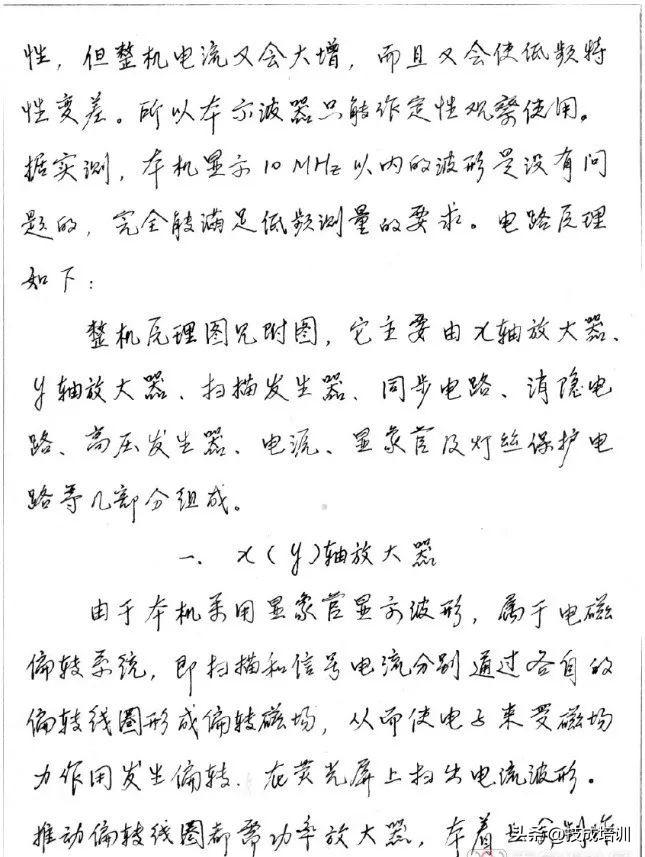 性，但整机电流又会大增，而且又会使低频特
性变差。所以本示波器只能作定性观察使用。
据实测，本机显示10 MHz以内的波形是没有问
题的，完全能满足低频测量的要求。电路原理
如下：
整机原理图见附图，它主要由x轴放大器、
y轴放大器、扫描发生器、同步电路、消隐电
路、高压发生器、电源、显象管及灯丝保护电
路等几部分组成。
一、x(y)轴放大器
由于本机采用显象管显示波形，属于电磁
偏转系统，即扫描和信号电流分别通过各自的
偏转线圈形成偏转磁场，从而使电子束受磁场
力作用发生偏转．在荧光屏上扫出电流波形。
推动偏转线圈都需功率放大器，本着
头条@技成培训